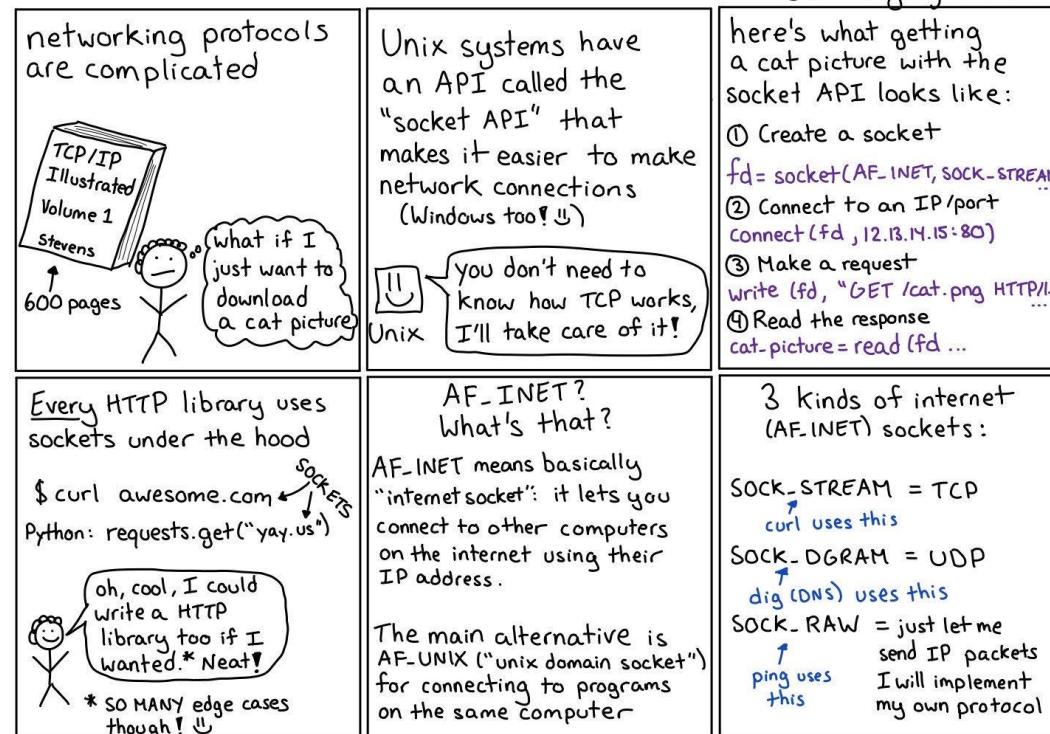 networking protocols
are complicated
TCP/IP
Illustrated
Volume 1
Stevens
600 pages
what if I
just want to
download
a cat picture
Unix systems have
an API called the
"socket API" that
makes it easier to make
network connections
(Windows too! !!)
Unix
you don't need to
know how TCP works,
I'll take care of it!
here's what getting
a cat picture with the
socket API looks like:
① Create a socket
fd = socket(AF_INET, SOCK_STREAM
② Connect to an IP/port
connect (fd, 12.13.14.15:80)
③ Make a request
write (fd, "GET /cat.png HTTP/1.
④ Read the response
cat_picture = read (fd ...
Every HTTP library uses
sockets under the hood
$ curl awesome.com
SOCKETS
Python: requests.get("yay.us")
oh, cool, I could
write a HTTP
library too if I
wanted.* Neat!
* SO MANY edge cases
though!
AF_INET?
What's that?
AF_INET means basically
"internet socket": it lets you
connect to other computers
on the internet using their
IP address.
The main alternative is
AF_UNIX ("unix domain socket")
for connecting to programs
on the same computer
3 kinds of internet
(AF_INET) sockets:
SOCK_STREAM = TCP
curl uses this
SOCK_DGRAM = UDP
dig (DNS) uses this
SOCK_RAW = just let me
send IP packets
ping uses
I will implement
this
my own protocol